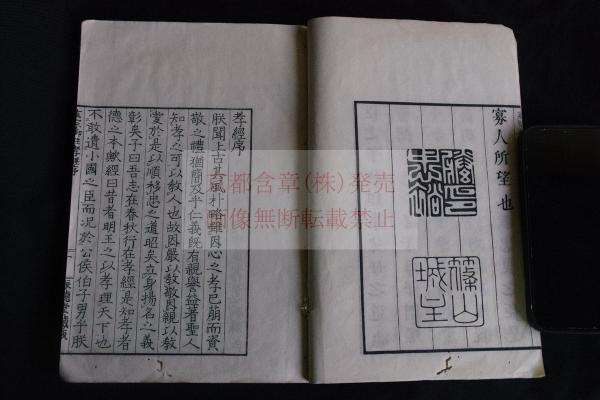 寡人所望也
忠裕
篠山
城主
孝經序
朕聞上古其風朴略雖因心之孝已萌而資
敬之禮猶簡及乎仁義既有親譽益著聖人
知孝之可以教人也故因嚴以教敬因親以教
愛於是以順移忠之道昭矣立身揚名之義
彰矣子曰吾志在春秋行在孝經是知孝者
德之本歟經曰昔者明王之以孝理天下也
不敢遺小國之臣而況於公侯伯子男乎朕
京都含章(株)発売
画像無断転載禁止